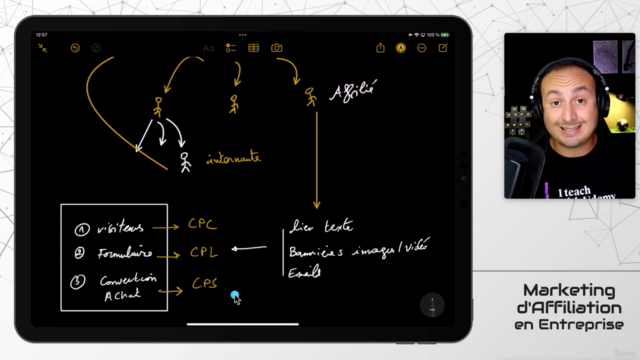 12:57
100 %
Aa
Affilié
internaute
① visiteurs → CPC
② Formulaire → CPL
③ Conversion
Achat → CPS
lien texte
Bannières images/vidéo
Emails
I teach
Udemy
Marketing
d'Affiliation
en Entreprise